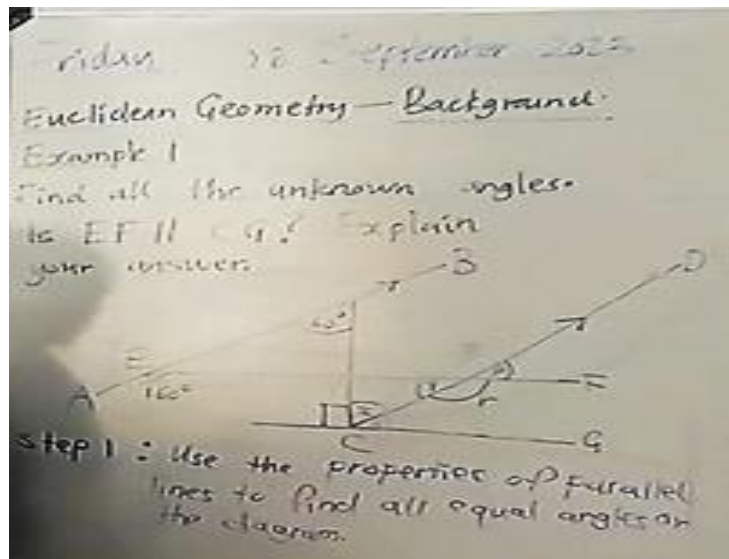 Friday September
Euclidean Geometry — Background.
Example 1
Find all the unknown angles.
Is EF || CG? Explain
your answer.
B
D
60°
E
A
160°
r
C
G
Step 1: Use the properties of Parallel
lines to find all equal angles on
the diagram.